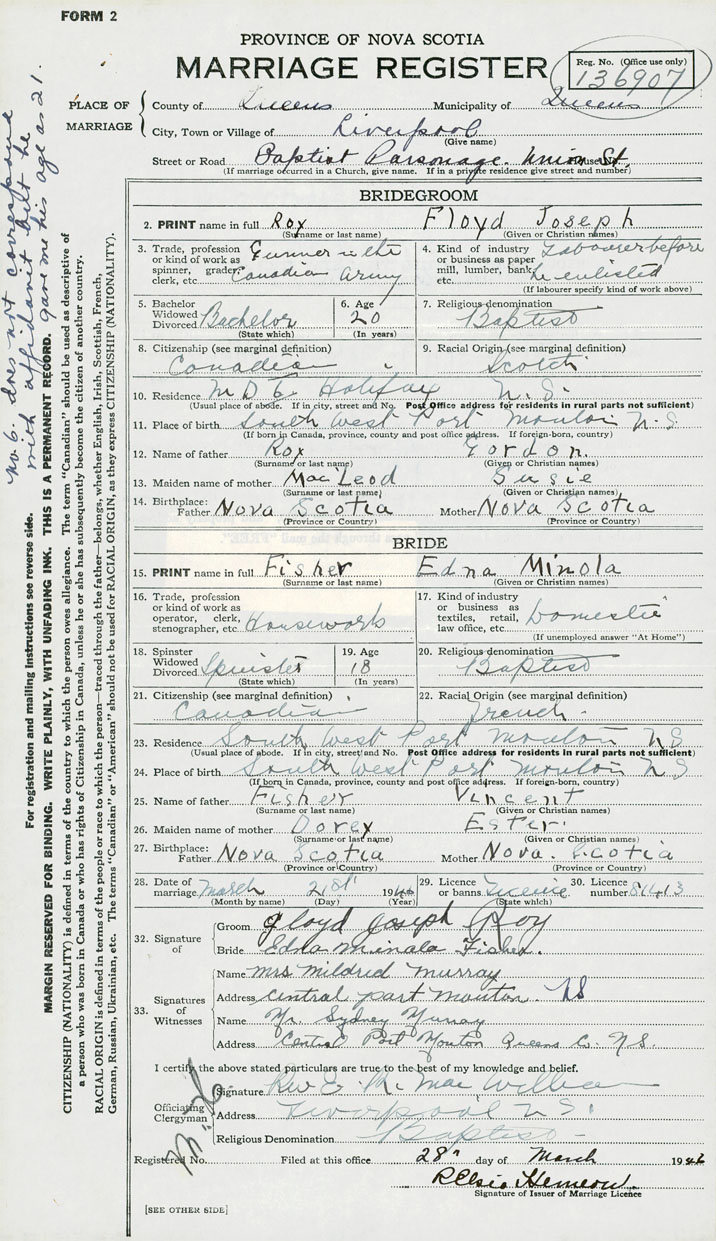 FORM 2
PROVINCE OF NOVA SCOTIA
MARRIAGE REGISTER
Reg. No. (Office use only)
136907
PLACE OF MARRIAGE
County of Queens Municipality of Queens
City, Town or Village of Liverpool
(Give name)
Street or Road Baptist Parsonage. Union St.
(If marriage occurred in a Church, give name. If in a private residence give street and number)
BRIDEGROOM
2. PRINT name in full Roy Floyd Joseph
(Surname or last name) (Given or Christian names)
3. Trade, profession or kind of work as spinner, grader, clerk, etc. Gunner in the Canadian Army
4. Kind of industry or business as paper mill, lumber, bank, etc. Labourer before he enlisted
(If labourer specify kind of work above)
5. Bachelor Widowed Divorced Bachelor
(State which)
6. Age 20
(In years)
7. Religious denomination
Baptist
8. Citizenship (see marginal definition)
Canadian
9. Racial Origin (see marginal definition)
Scotch
10. Residence M D 6 Halifax N.S.
(Usual place of abode. If in city, street and No. Post Office address for residents in rural parts not sufficient)
11. Place of birth South West Port Mouton N.S
(If born in Canada, province, county and post office address. If foreign-born, country)
12. Name of father Roy Gordon.
(Surname or last name) (Given or Christian names)
13. Maiden name of mother MacLeod Susie
(Surname or last name) (Given or Christian names)
14. Birthplace: Father Nova Scotia Mother Nova Scotia
(Province or Country) (Province or Country)
BRIDE
15. PRINT name in full Fisher Edna Minola
(Surname or last name) (Given or Christian names)
16. Trade, profession or kind of work as operator, clerk, stenographer, etc. Housework
17. Kind of industry or business as textiles, retail, law office, etc. Domestic
(If unemployed answer "At Home")
18. Spinster Widowed Divorced Spinster
(State which)
19. Age 18
(In years)
20. Religious denomination
Baptist
21. Citizenship (see marginal definition)
Canadian
22. Racial Origin (see marginal definition)
French.
23. Residence South West Port Mouton NS
(Usual place of abode. If in city, street and No. Post Office address for residents in rural parts not sufficient)
24. Place of birth South West Port Mouton NS
(If born in Canada, province, county and post office address. If foreign-born, country)
25. Name of father Fisher Vincent
(Surname or last name) (Given or Christian names)
26. Maiden name of mother Dorey Ester.
(Surname or last name) (Given or Christian names)
27. Birthplace: Father Nova Scotia Mother Nova. Scotia
(Province or Country) (Province or Country)
28. Date of marriage March 21st 1946
(Month by name) (Day) (Year)
29. Licence or banns Licence
(State which)
30. Licence number 81413
32. Signature of
Groom Floyd Joseph Roy
Bride Edna Minala Fisher.
33. Signatures of Witnesses
Name Mrs Mildred Murray
Address Central port mouton NS
Name Mr. Sydney Murray
Address Central Port Mouton Queens Co. N.S.
I certify the above stated particulars are true to the best of my knowledge and belief.
Officiating Clergyman
Signature Rev E. M. Mac William
Address Liverpool N S.
Religious Denomination Baptist
Registered No. Filed at this office 28th day of March 1946
Signature of Issuer of Marriage Licence
[SEE OTHER SIDE]
No 6. does not correspond
with affidavit but he
gave me his age as 21.
For registration and mailing instructions see reverse side.
MARGIN RESERVED FOR BINDING. WRITE PLAINLY, WITH UNFADING INK. THIS IS A PERMANENT RECORD.
CITIZENSHIP (NATIONALITY) is defined in terms of the country to which the person owes allegiance. The term "Canadian" should be used as descriptive of
a person who was born in Canada or who has rights of Citizenship in Canada, unless he or she has subsequently become the citizen of another country.
RACIAL ORIGIN is defined in terms of the people or race to which the person—traced through the father—belongs, whether English, Irish, Scottish, French,
German, Russian, Ukrainian, etc. The terms "Canadian" or "American" should not be used for RACIAL ORIGIN, as they express CITIZENSHIP (NATIONALITY).